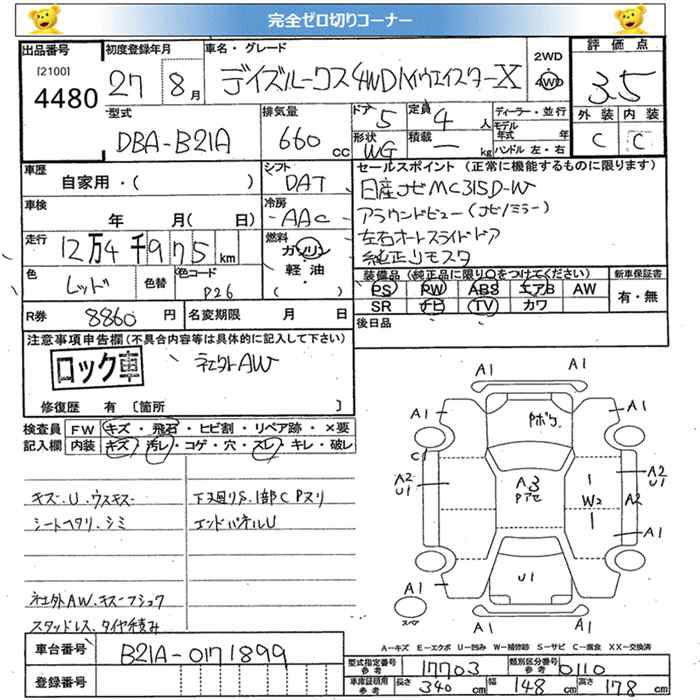 完全ゼロ切りコーナー
出品番号 初度登録年月 車名・グレード 2WD 4WD 評価点
[2100] 4480 27 8月 デイズルークス4WDハイウェイスターX 3.5
型式 排気量 ドア 5 定員 4人 ディーラー・並行 外装 内装
DBA-B21A 660cc 形状 WG 積載 ー kg モデル年式 年 ハンドル 左・右 C C
車歴 シフト セールスポイント(正常に機能するものに限ります)
自家用・( ) DAT 日産ナビMC315D-W
車検 年 月( 日) 冷房 AAC アラウンドビュー(ナビ/ミラー)
走行 12万4千975km 燃料 ガソリン 左右オートスライドドア
軽油 純正リモスタ
色 レッド 色替 色コード P26 ( ) 装備品(純正品に限り○をつけてください) 新車保証書
PS PW ABS エアB AW 有・無
SR ナビ TV カワ
R券 8860円 名変期限 月 日 後日品
注意事項申告欄(不具合内容等は具体的に記入して下さい)
ロック車 社外AW
修復歴 有 [箇所 ]
検査員 FW キズ・飛石・ヒビ割・リペア跡・×要
記入欄 内装 キズ・汚レ・コゲ・穴・スレ・キレ・破レ
キズ.U.ウスキズ 下廻りS.1部C Pスリ
シートヘタリ.シミ エンドパネルU
社外AW.キズ
スタッドレス.タイヤ積み
A1
A1
A1
A1
Pボケ
C1
A2
U1
A3
Pアセ
W2
A2
U1
A2
A1
U1
A1
A1
A1
スペア
A…キズ E…エクボ U…凹み W…補修跡 S…サビ C…腐食 XX…交換済
車台番号 B21A-0171899
登録番号
型式指定番号 参考 17703 類別区分番号 参考 0110
車庫証明用 参考 長さ 340cm 幅 148cm 高さ 178cm